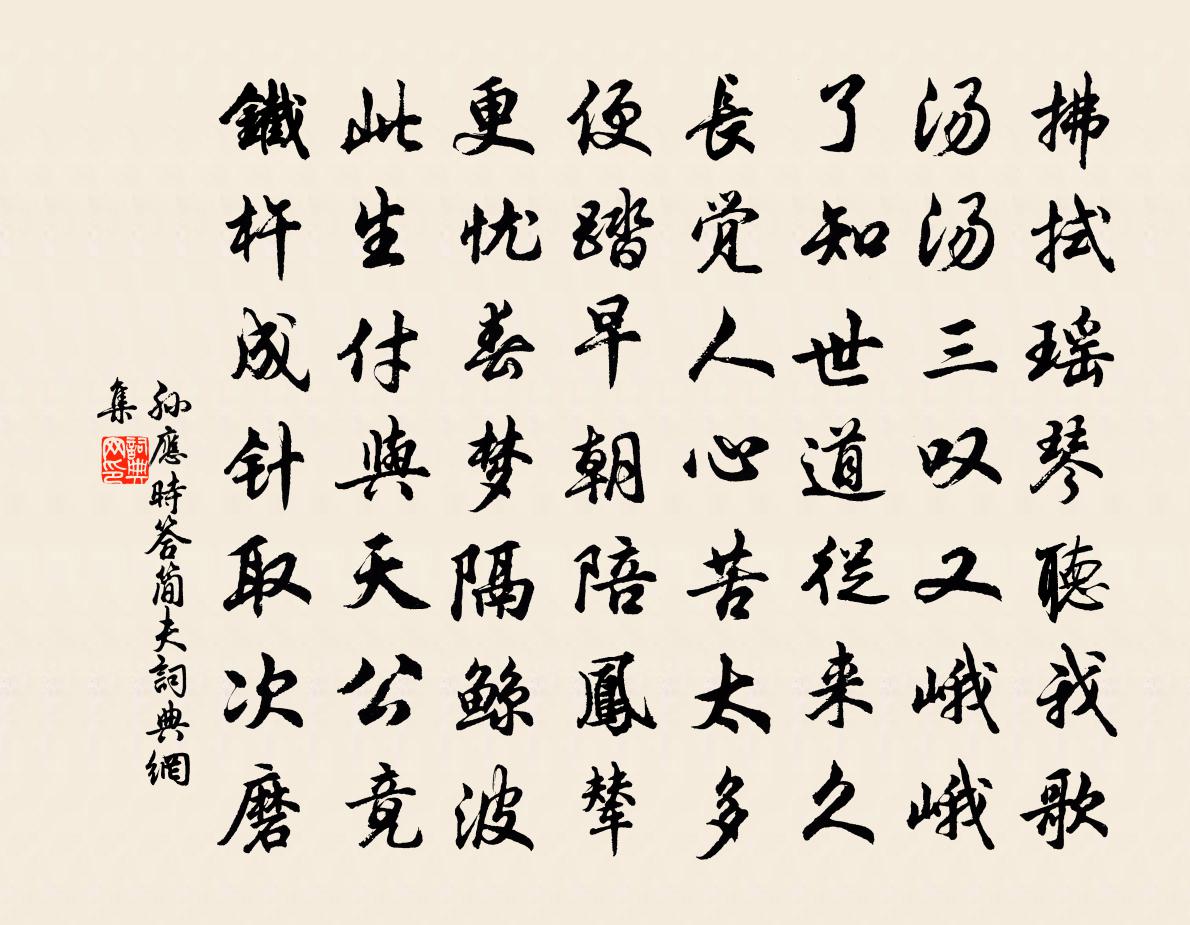 拂拭瑶琴聽我歌
汤汤三叹又峨峨
了知世道從来久
長覚人心苦太多
便踏早朝陪鳳辇
更忧春梦隔鲸波
此生付與天公竟
鐵杵成针取次磨
孙應時答简夫詞典網
集
詞典
网印